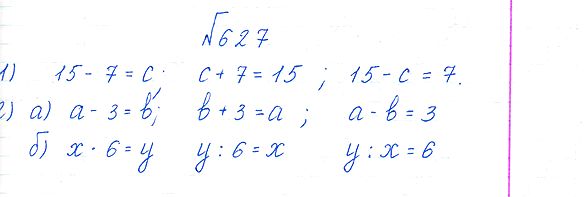 №627
1) 15 - 7 = c; c + 7 = 15 ; 15 - c = 7.
2) а) a - 3 = b; b + 3 = a ; a - b = 3
б) x · 6 = y y : 6 = x y : x = 6